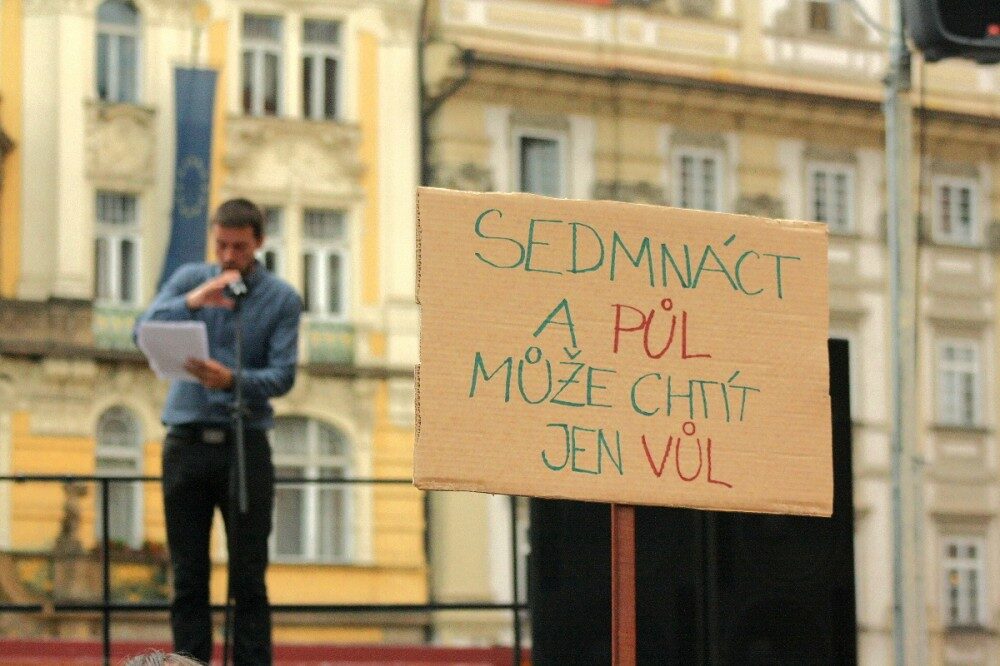 SEDMNÁCT
A PŮL
MŮŽE CHTÍT
JEN VŮL